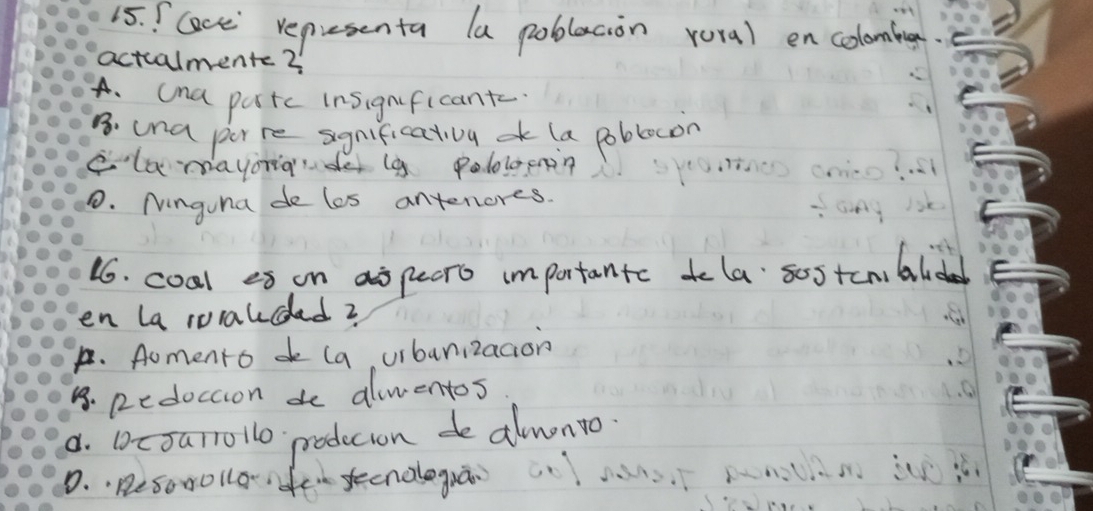 15. ¿Qué representa la población rural en colombia.
actualmente?
A. Una parte insignificante.
B. una parte significativa de la Población
C. la mayoria de la Poblacion
D. Ninguna de los anteriores.
16. coal es un aspecto importante de la sostenibilidad
en la ruralidad?
A. Aomento de la urbanización
B. Redoccion de alimentos.
C. Desarrollo prodecion de alimento.
D. Desarrollo de tecnologias